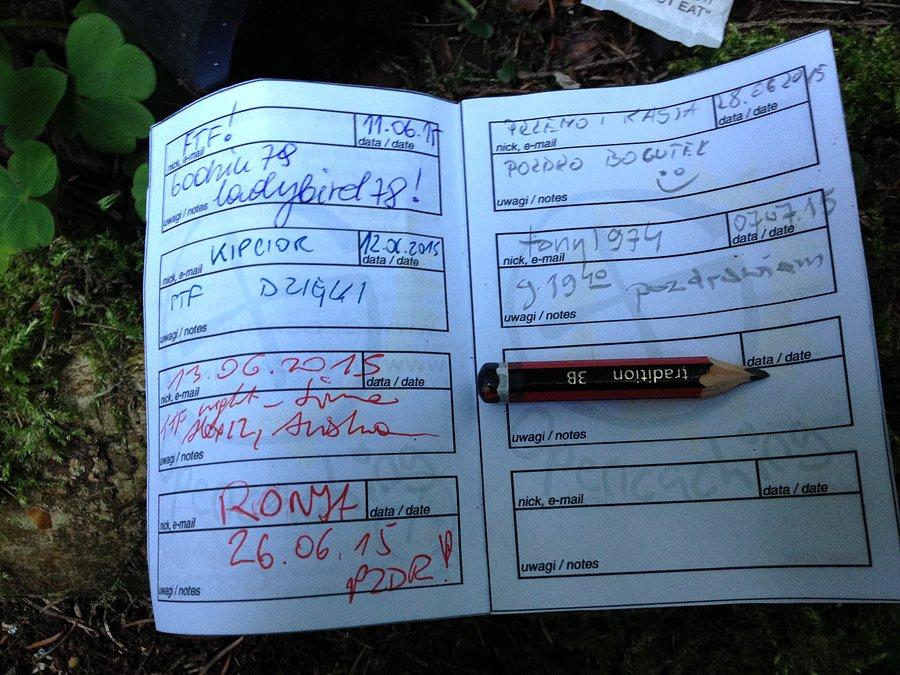 OT EAT"
FTF!
11.06.15
nick, e-mail
data / date
bodziu 78
ladybird78!
uwagi / notes
KIPCIOR
12.06.2015
nick, e-mail
data / date
FTF DZIĘKI
uwagi / notes
13.06.2015
nick, e-mail
data / date
uwagi / notes
RONJA
nick, e-mail
data / date
26.06.15
PZDR!
uwagi / notes
PRZEMO I KASIA
28.06.2015
nick, e-mail
data / date
POZDRO BOGUTEK
uwagi / notes
tony1974
07.07.15
nick, e-mail
data / date
g. 19 10 pozdrawiam
uwagi / notes
data / date
tradition 3B
uwagi / notes
nick, e-mail
data / date
uwagi / notes